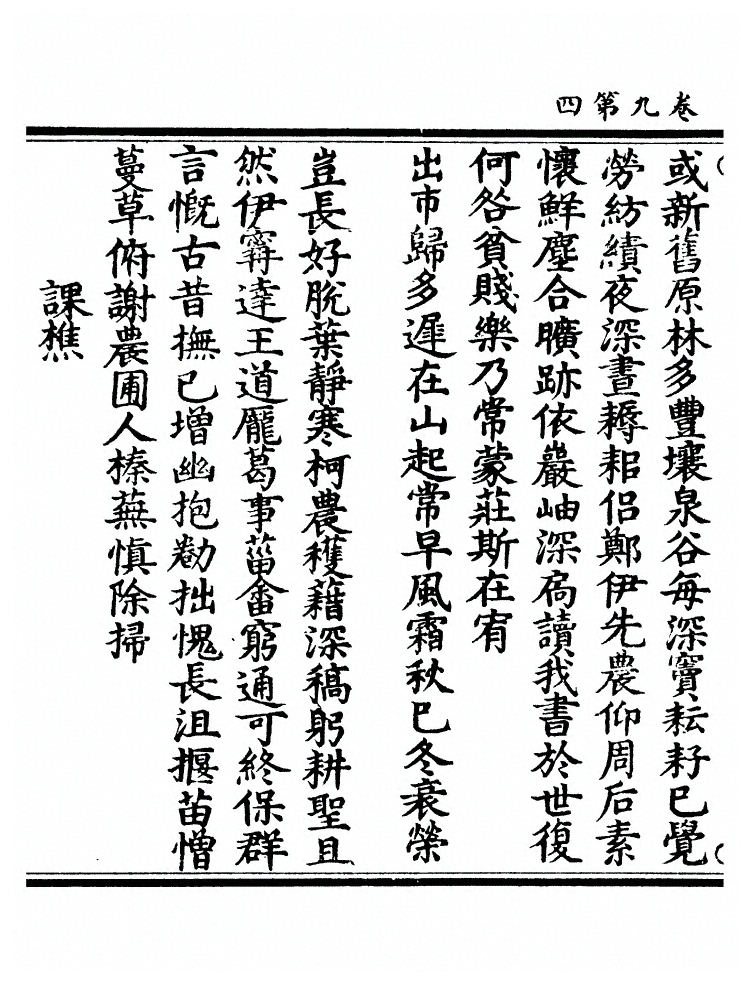 卷九第四
或新舊原林多豐壤泉谷每深竇耘耔已覺
勞紡績夜深晝耨耜侶鄭伊先農仰周后素
懷鮮塵合曠跡依巖岫深扃讀我書於世復
何咎貧賤樂乃常蒙莊斯在宥
出市歸多遲在山起常早風霜秋巳冬衰榮
豈長好脫葉靜寒柯農穫藉深稿躬耕聖且
然伊寗達王道龐葛事菑畬窮通可終保群
言慨古昔撫已增幽抱勌拙愧長沮揠苗憎
蔓草俯謝農圃人榛蕪慎除掃
課樵